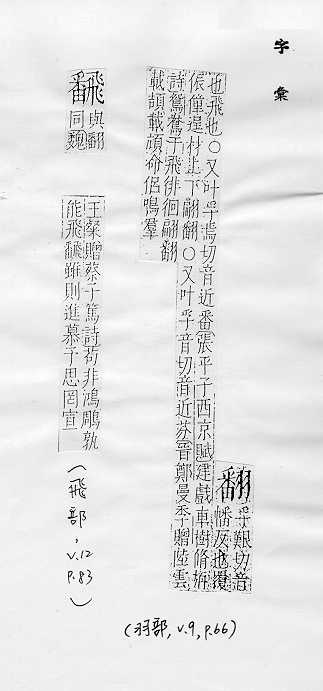 字彙
翻
孚艱切音
幡反也覆
也飛也○又叶孚焉切音近番張平子西京賦建戲車樹脩旃
侲僮逞材上下翩翻○又叶孚音切音近芬晉鄭曼季贈陸雲
詩鴛鴦于飛徘徊翩翻
載頡載頏命侶鳴羣
(羽部, v.9, p.66)
飜
與翻
同魏
王粲贈蔡子篤詩苟非鴻鵰孰
能飛飜雖則進慕予思罔宣
(飛部, v.12 p.83)